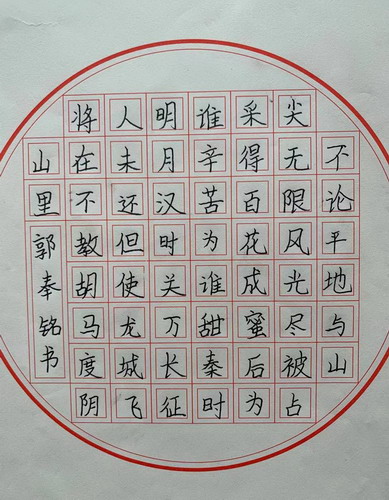 不论平地与山
尖无限风光尽被占
采得百花成蜜后为
谁辛苦为谁甜秦时
明月汉时关万长征
人未还但使龙城飞
将在不教胡马度阴
山里
郭奉铭书